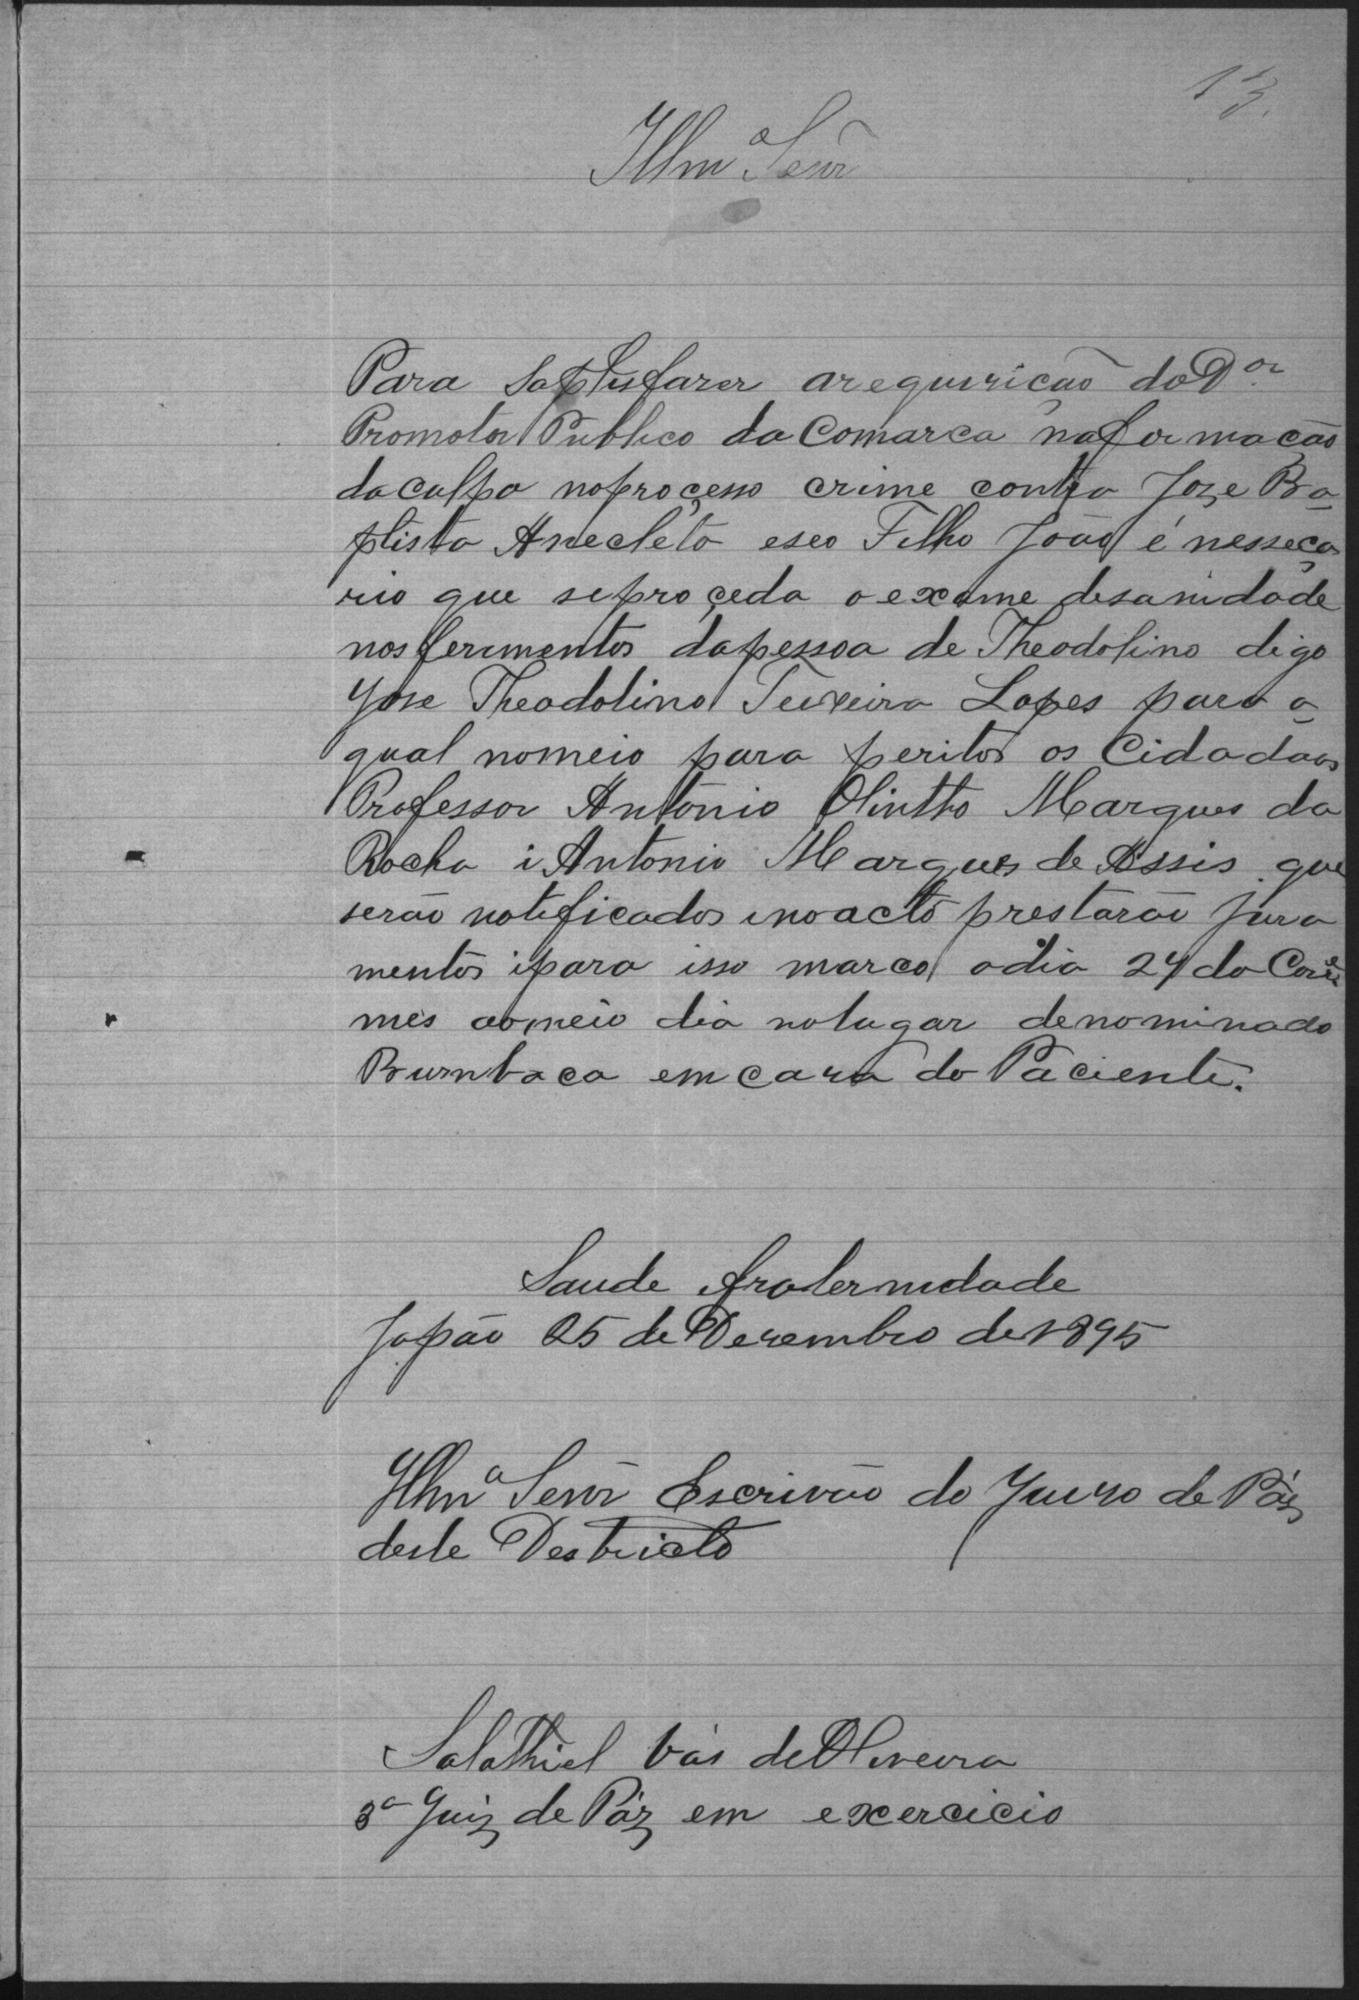 13.
Illmº Senr
Para saptisfazer a requiricão do Dor
Promotor Publico da Comarca na formação
da culpa no proçesso crime contra Joze Ba
ptista Anecleto e seo Filho João é nesseça
rio que se proçeda o exame de sanidade
nos ferimentos da pessoa de Theodolino digo
Jose Theodolino Teixeira Lopes para o
qual nomeio para peritos os Cidadaos
Professor Antonio Olintho Marques da
Rocha i Antonio Marques de Assis que
serão notificados i no acto prestarão jura
mentos i para isso marco o dia 24 do Corte
mes ao meio dia no lugar denominado
em caza do Paciente.
Saude fraternidade
Japão 25 de Dezembro de 1895
Illmº Senr Escrivão do Juizo de Páz
deste Destricto
Salathiel Vás de Oliveira
3º Juiz de Páz em exercicio